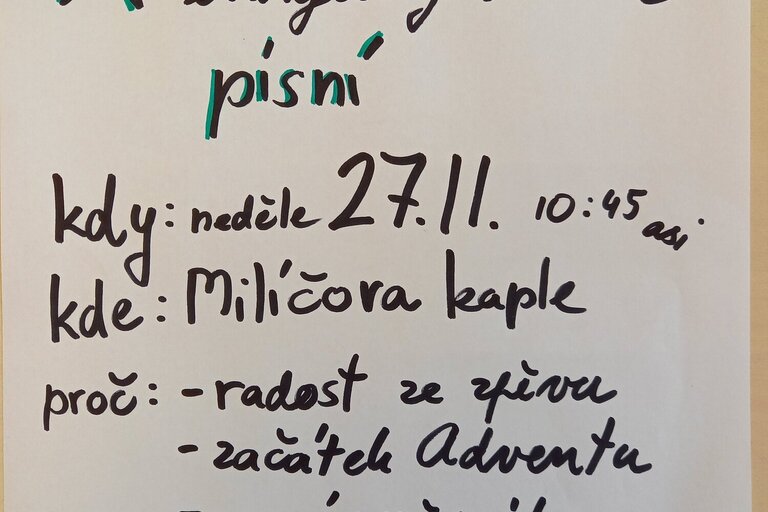 písní
kdy: neděle 27.11. 10:45 asi
kde: Milíčova kaple
proč: - radost ze zpěvu
- začátek Adventu